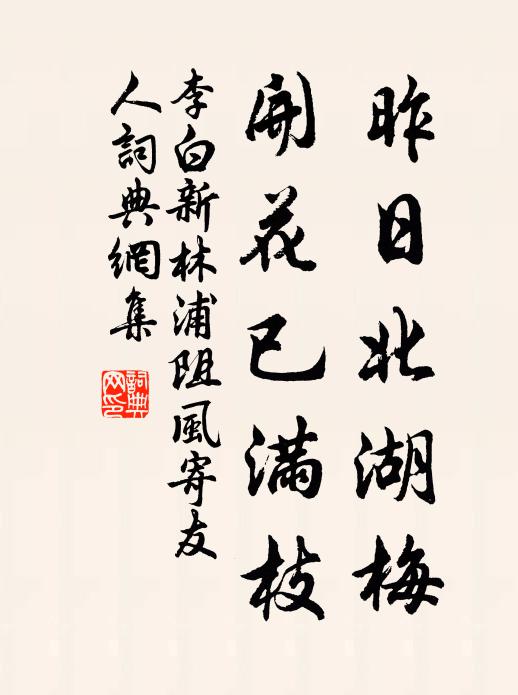 昨日北湖梅
開花已滿枝
李白新林浦阻風寄友
人詞典網集
詞典
网印